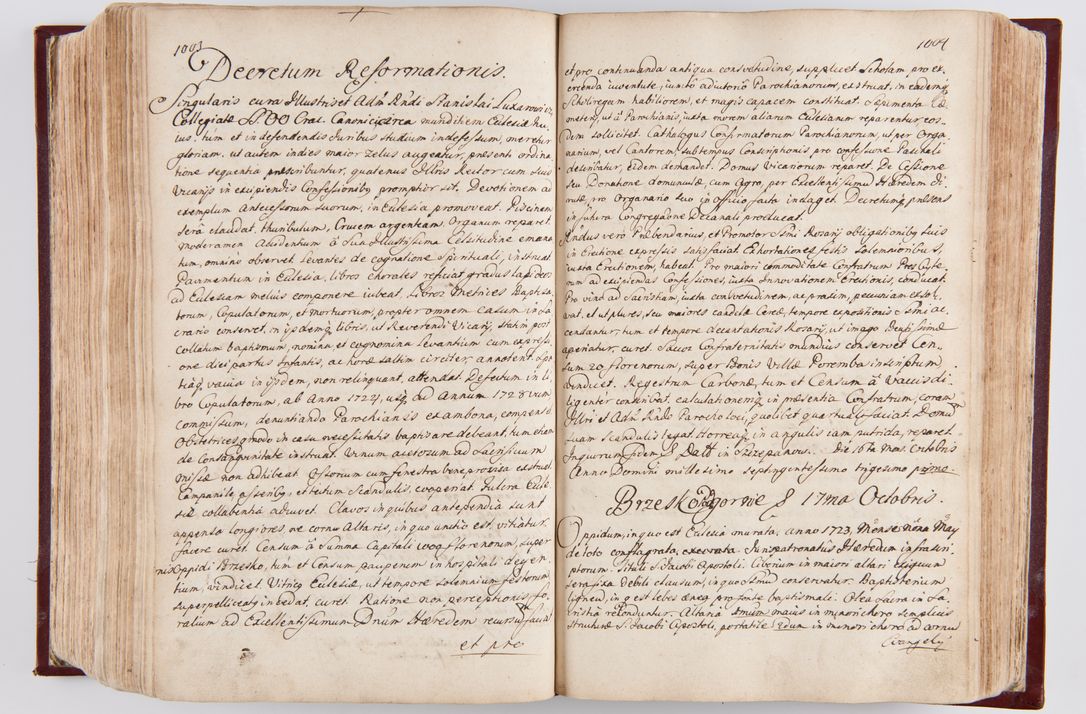 1003
Decretum Reformationis.
Singularis cura Illustris et Adm Rndi Stanislai Luxarowicz
Collegiatæ SS OO Crac. Canonici circa munditiem Ecclesiæ hu-
ius, tum et in defendendis Juribus studium indefessum, meretur
gloriam, ut autem indies maior zelus augeatur, præsenti ordina
tione sequentia præscribuntur, quatenus Illris Rector cum suis
Vicarijs in excipiendis Confessionibq promptior sit, Devotionem ad
exemplum Antecessorum suorum, in Ecclesia promoveat. Piscinam
serâ claudat, thuribulum, Crucem argenteam. Organum reparet
moderamen Accidentium à Sua Illustrissima Celsitudine emana
tum, omnino observet, Levantes de cognatione spirituali, instruat
Pavimentum in Ecclesia, libros chorales reficiat gradus lapideos
ad Ecclesiam melius componere iubeat, Libros Metrices Baptiza-
torum, Copulatorum, et mortuorum, propter omnem casum in Sa
crario conservet, in ijsdemq libris, ut Reverendi Vicarij statim post
collatum baptismum, nomina, et cognomina Levantium cum expressi
one diei partus Infantis, ac horæ saltim circiter, annotent, spa
tiaq vacua in ijsdem, non relinquant, attendat. Defectum in li
bro Copulatorum, ab Anno 1724 usq ad Annum 1728vum
commissum, denuntiando Parochianis ex ambona, compenset
Obstetrices, quomodo in casu necessitatis baptisare debeant, tum etiam
de Consangvinitate instruat. Vinum acetosum ad Sacrificium
missæ non adhibeat. Ossorium cum fenestra bene provisa exstruat
Campanile, asseribq, et tectum Scandulis, cooperiat. Fulcra Eccle
siæ collabentia adiuvet. Clavos in quibus antependia sunt
appensa longiores ne cornu Altaris, in quo unctio est, vitiatur,
facere curet. Censum à Summa Capitali 1000 florenorum, super
Oppidi Brzesko, tum et Censum pauperum in hospitali degen
tium, vindicet. Vitricq Ecclesiæ, ut tempore solemnium festorum,
superpelliceatq incedat, curet. Ratione non perceptionis fo
ralium ad Excellentissimum Dnum Hæredem recursum faciat
et pro
1004
et pro continuanda antiqua consvetudine, supplicet Scholam, pro ex-
ercenda iuventute, iuncto adiutorio Parochianorum, exstruat, in eademq
Scholiregum habiliorem, et magis capacem constituat. Sepimenta Cæ
meterij, ut à Parochianis, iuxta morem aliarum Ecclesiarum reparentur, eos-
dem sollicitet. Cathalogum Confirmatorum Parochianorum, ut per Orga-
narium, vel Cantorem, sub tempus Conscriptionis pro confessione Paschali
describatur, eidem demandet. Domus Vicariorum reparet. De Cessione
seu Donatione domunculæ, cum Agro, per Excellentissimum Hæredem Ci-
uili, pro Organario suo in Officio facta indaget. Decretumq præsens
in futura Congregatione Decanali producat.
Rndus vero Præbendarius, et Promotor Ssmi Rosarij obligationibq suis
in Erectione expressis satisfaciat. Exhortationes, festis solemnioribus,
iuxta Erectionem, habeat. Pro maiori commoditate Confratrum Presbyte-
rum ad excipiendas Confessiones, iuxta Innovationem Erectionis, conducat.
Pro vino ad Sacristiam, iuxta consvetudinem, ac praxim, pecuniam exsol-
vat, et ut plures, seu maiores candelæ Cereæ, tempore expositionis Ssmi ac-
cendantur, tum et tempore decantationis Rosarij, ut imago Beatissimæ
aperiatur, curet. Saccos Confraternitatis mundius conservet Cen-
sum 20 florenorum, super bonis Villæ Poremba inscriptum
vindicet. Regestrum Carbonæ, tum et Censum à Vaccis di-
ligenter conscribat, calculationemq in præsentia Confratrum, coram
Illri et Adm Rndo Parocho loci, quolibet quartuali faciat. Domum
suam scandulis tegat Horreaq in angulis iam putrida, reparet.
In quorum fidem &. Datt in Szczepanow. Die 16ta Mensis Octobris
Anno Domini millesimo septingentesimo trigesimo primo.
Brzesko Ogornie & 17ma Octobris.
Oppidum, in quo est Ecclesia murata, anno 1723, Mense nona May
de toto conflagrata, execrata Iuris patronatus Hæredum infrascri-
ptorum. Tituli S. Jacobi Apostoli. Ciborium in maiori altari exiguum
sera fixa debili clausum, in quo Ssmum conservatur. Baptisterium
ligneum, in q est lebes æneq pro fonte baptismali. Olea Sacra in Sa-
cristia reconduntur. Altaria 3mum maius in minori choro simplicis
structuræ S. Jacobi Apostoli, portatile 2dum in minori choro ad cornu
Evangelij